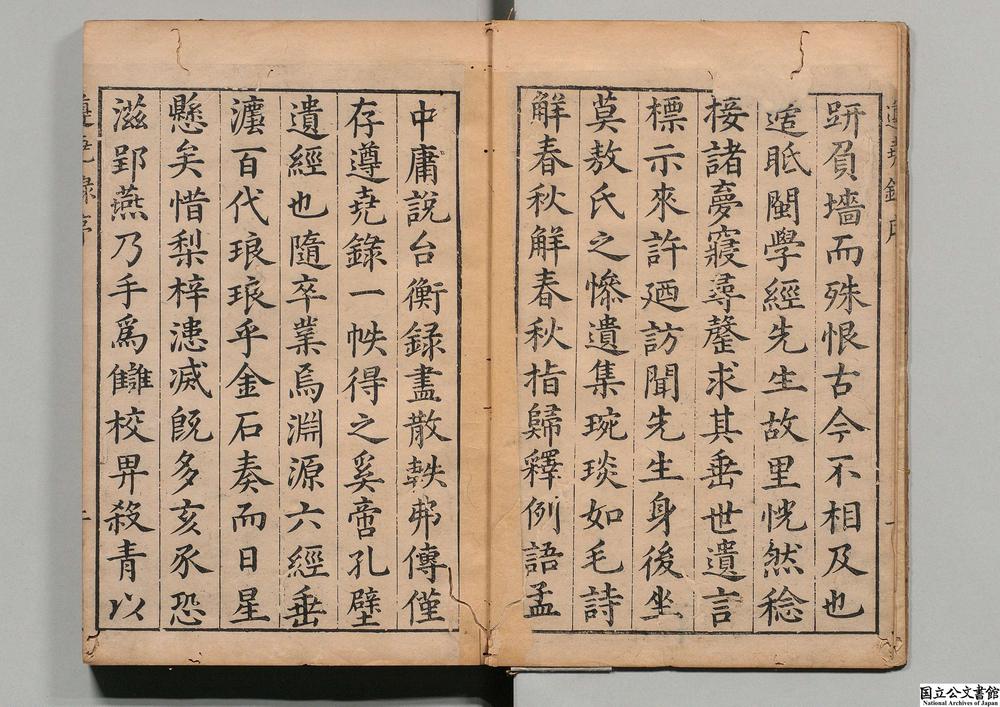 趼負墻而殊恨古今不相及也
逅眂閩學經先生故里恍然稔
接諸夢寢尋聲求其垂世遺言
標示來許廼訪聞先生身後坐
莫敖氏之慘遺集琬琰如毛詩
解春秋解春秋指歸釋例語孟
中庸說台衡錄盡散軼弗傳僅
存遵堯錄一帙得之奚啻孔壁
遺經也隨卒業焉淵源六經垂
灋百代琅琅乎金石奏而日星
懸矣惜梨梓漶滅旣多亥豕恐
滋郢燕乃手爲讎校畀殺青以
遵堯錄序
一
国立公文書館
National Archives of Japan